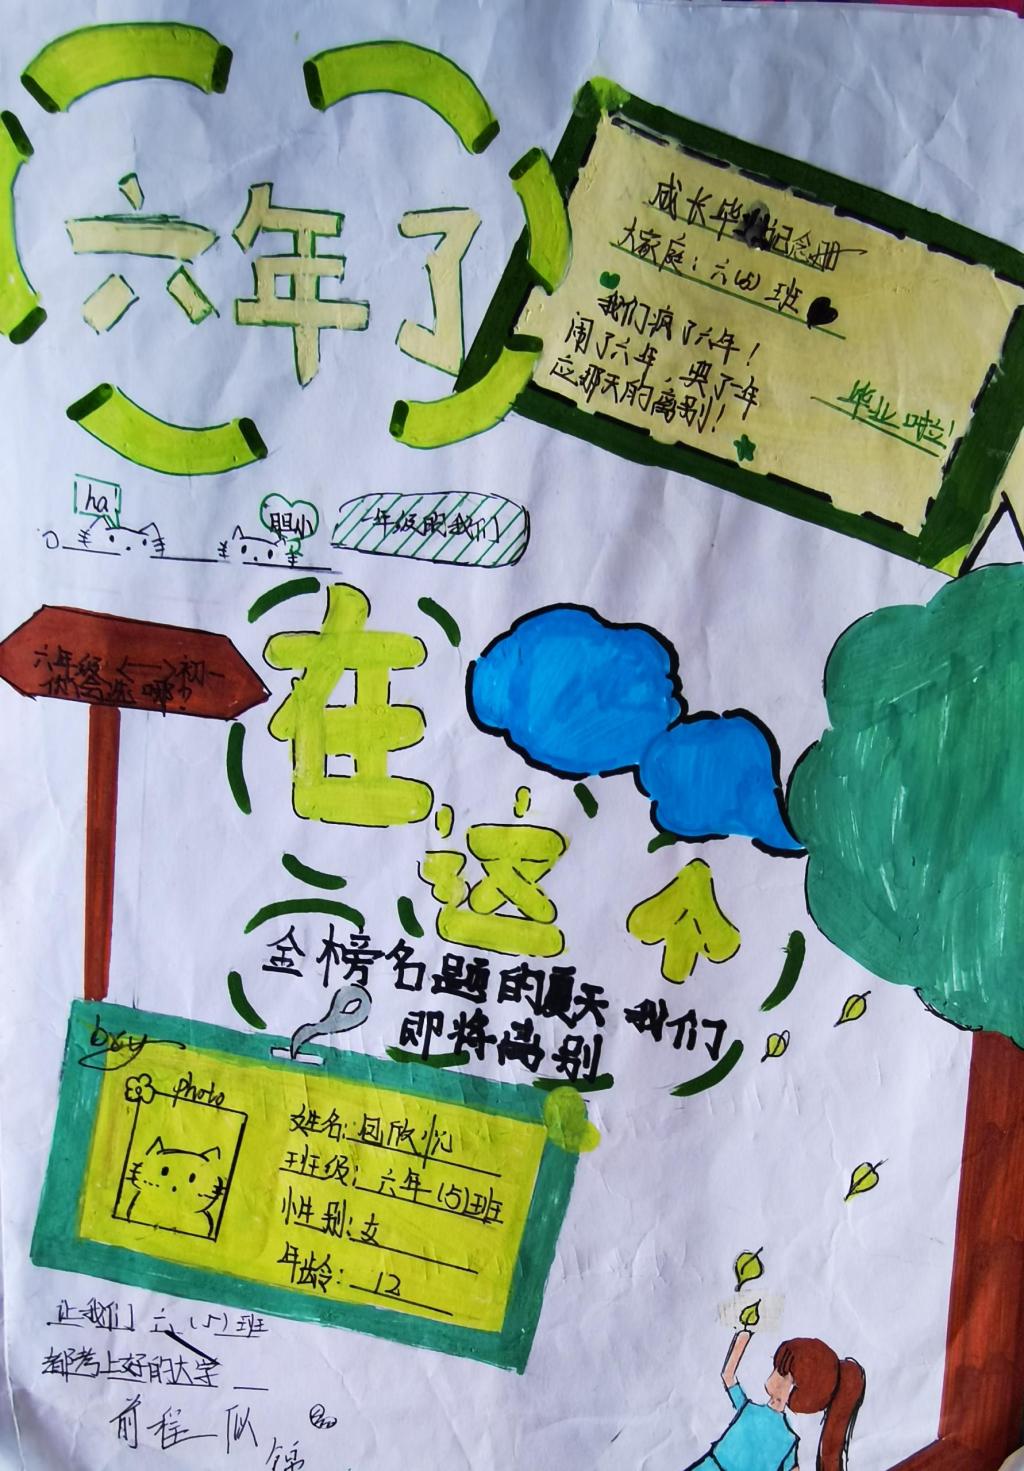 六年了
成长毕业纪念册
大家庭：六(5)班
我们疯了六年！
闹了六年，哭了一年
应那天的离别！
毕业啦！
ha!
胆小
一年级跟我们
六年级<—>初一
你会选哪？
在这个
金榜名题的夏天 我们
即将离别
photo
姓名：
班级：六年(5)班
性别：女
年龄：12
让我们 六(5)班
都考上好的大学
前程似
锦